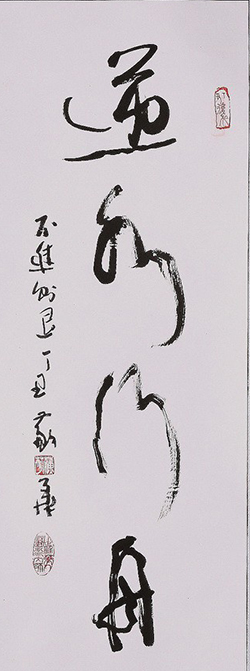 逆水行舟
不進則退 丁丑